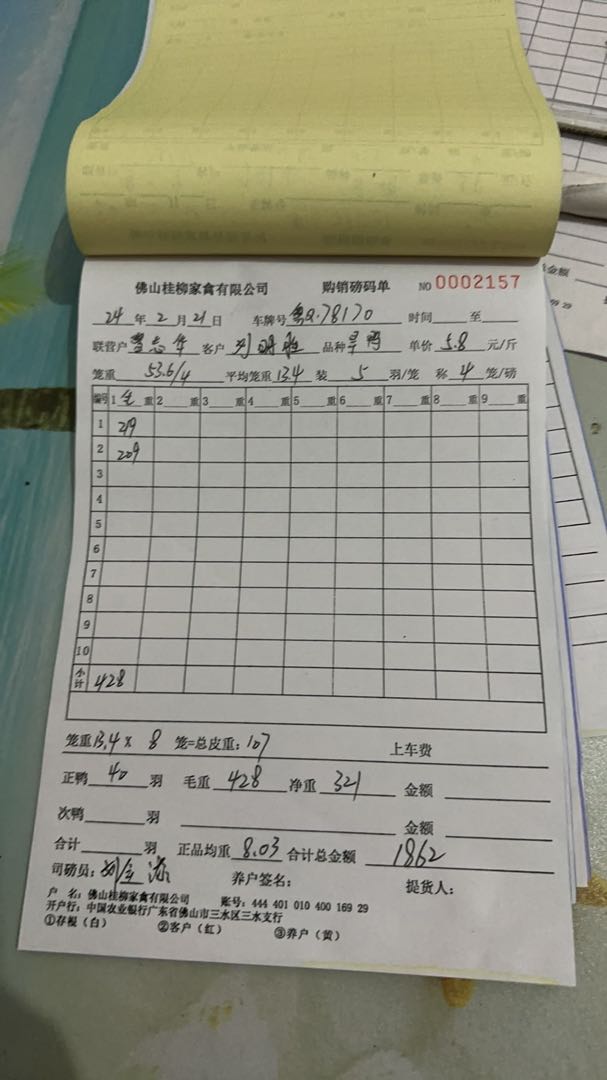 佛山桂柳家禽有限公司 购销磅码单 NO 0002157
24 年 2 月 21 日 车牌号 粤Q·78170 时间 至
联营户 客户 刘 品种 鸭 单价 5.8 元/斤
笼重 53.6/4 平均笼重 13.4 装 5 羽/笼 称 4 笼/磅
编号 1 重 2 重 3 重 4 重 5 重 6 重 7 重 8 重 9 重
1 219
2 209
3
4
5
6
7
8
9
10
小计 428
笼重 13.4 × 8 笼=总皮重: 107 上车费
正鸭 40 羽 毛重 428 净重 321 金额
次鸭 羽 金额
合计 羽 正品均重 8.03 合计总金额 1862
司磅员: 刘 养户签名: 提货人:
户 名: 佛山桂柳家禽有限公司 账号: 444 401 010 400 169 29
开户行: 中国农业银行广东省佛山市三水区三水支行
①存根(白) ②客户(红) ③养户(黄)